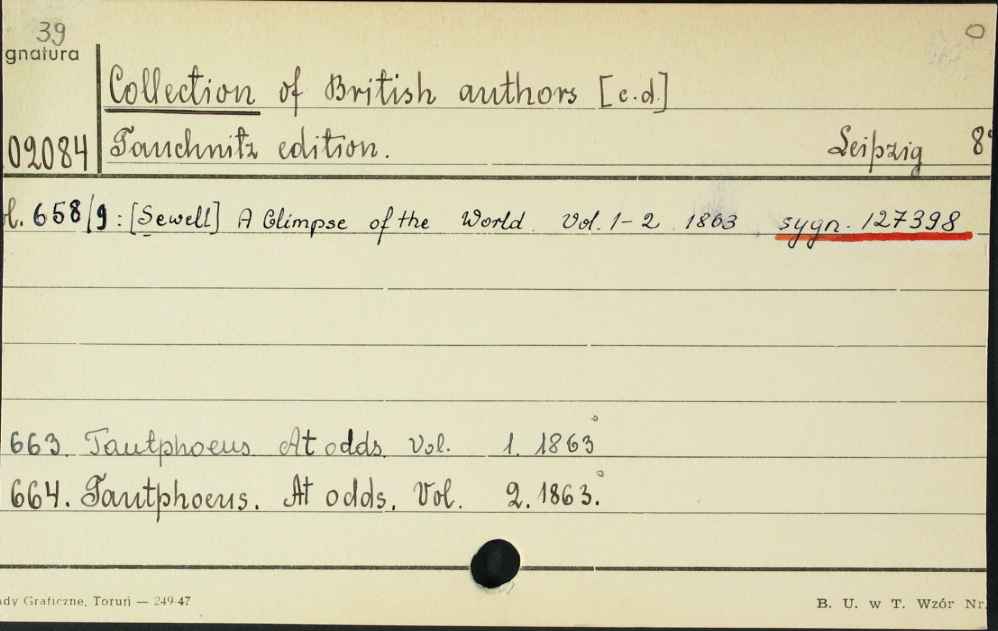 39
gnatura
Collection of British authors [c.d.]
02084 Tauchnitz edition. Leipzig 8°
l. 658/9: [Sewell] A Glimpse of the World. Vol. 1-2 1863 sygn. 127398
663. Tautphoeus At odds. Vol. 1. 1863°
664. Tautphoeus. At odds. Vol. 2. 1863.°
ady Graficzne, Toruń — 249-47 B. U. w T. Wzór Nr.